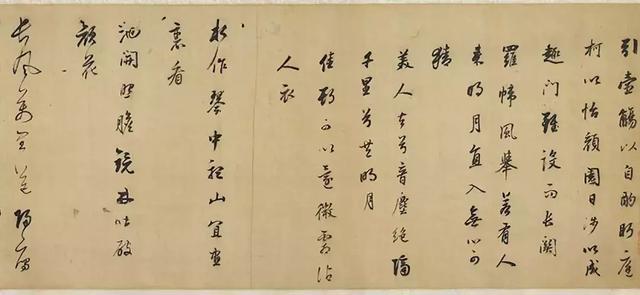 引壺觴以自酌眄庭
柯以怡顏園日涉以成
趣門雖設而長關
羅幃風舉若有人
来明月直入無心可
猜
美人去兮音塵絕隔
千里兮共明月
佳期可以還微霜沾
人衣
松作琴中聽山宜畫
裏看
池開照膽鏡林吐破
顏花
長風萬里送